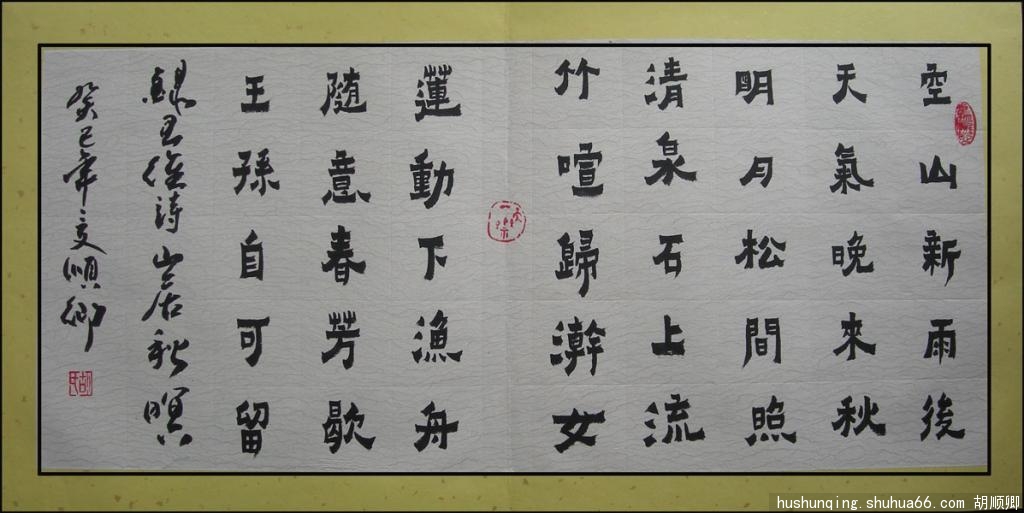 空山新雨後
天氣晚來秋
明月松間照
清泉石上流
竹喧歸澣女
蓮動下漁舟
隨意春芳歇
王孫自可留
録王維詩山居秋暝
癸巳年夏順卿
胡氏
hushunqing.shuhua66.com 胡顺卿